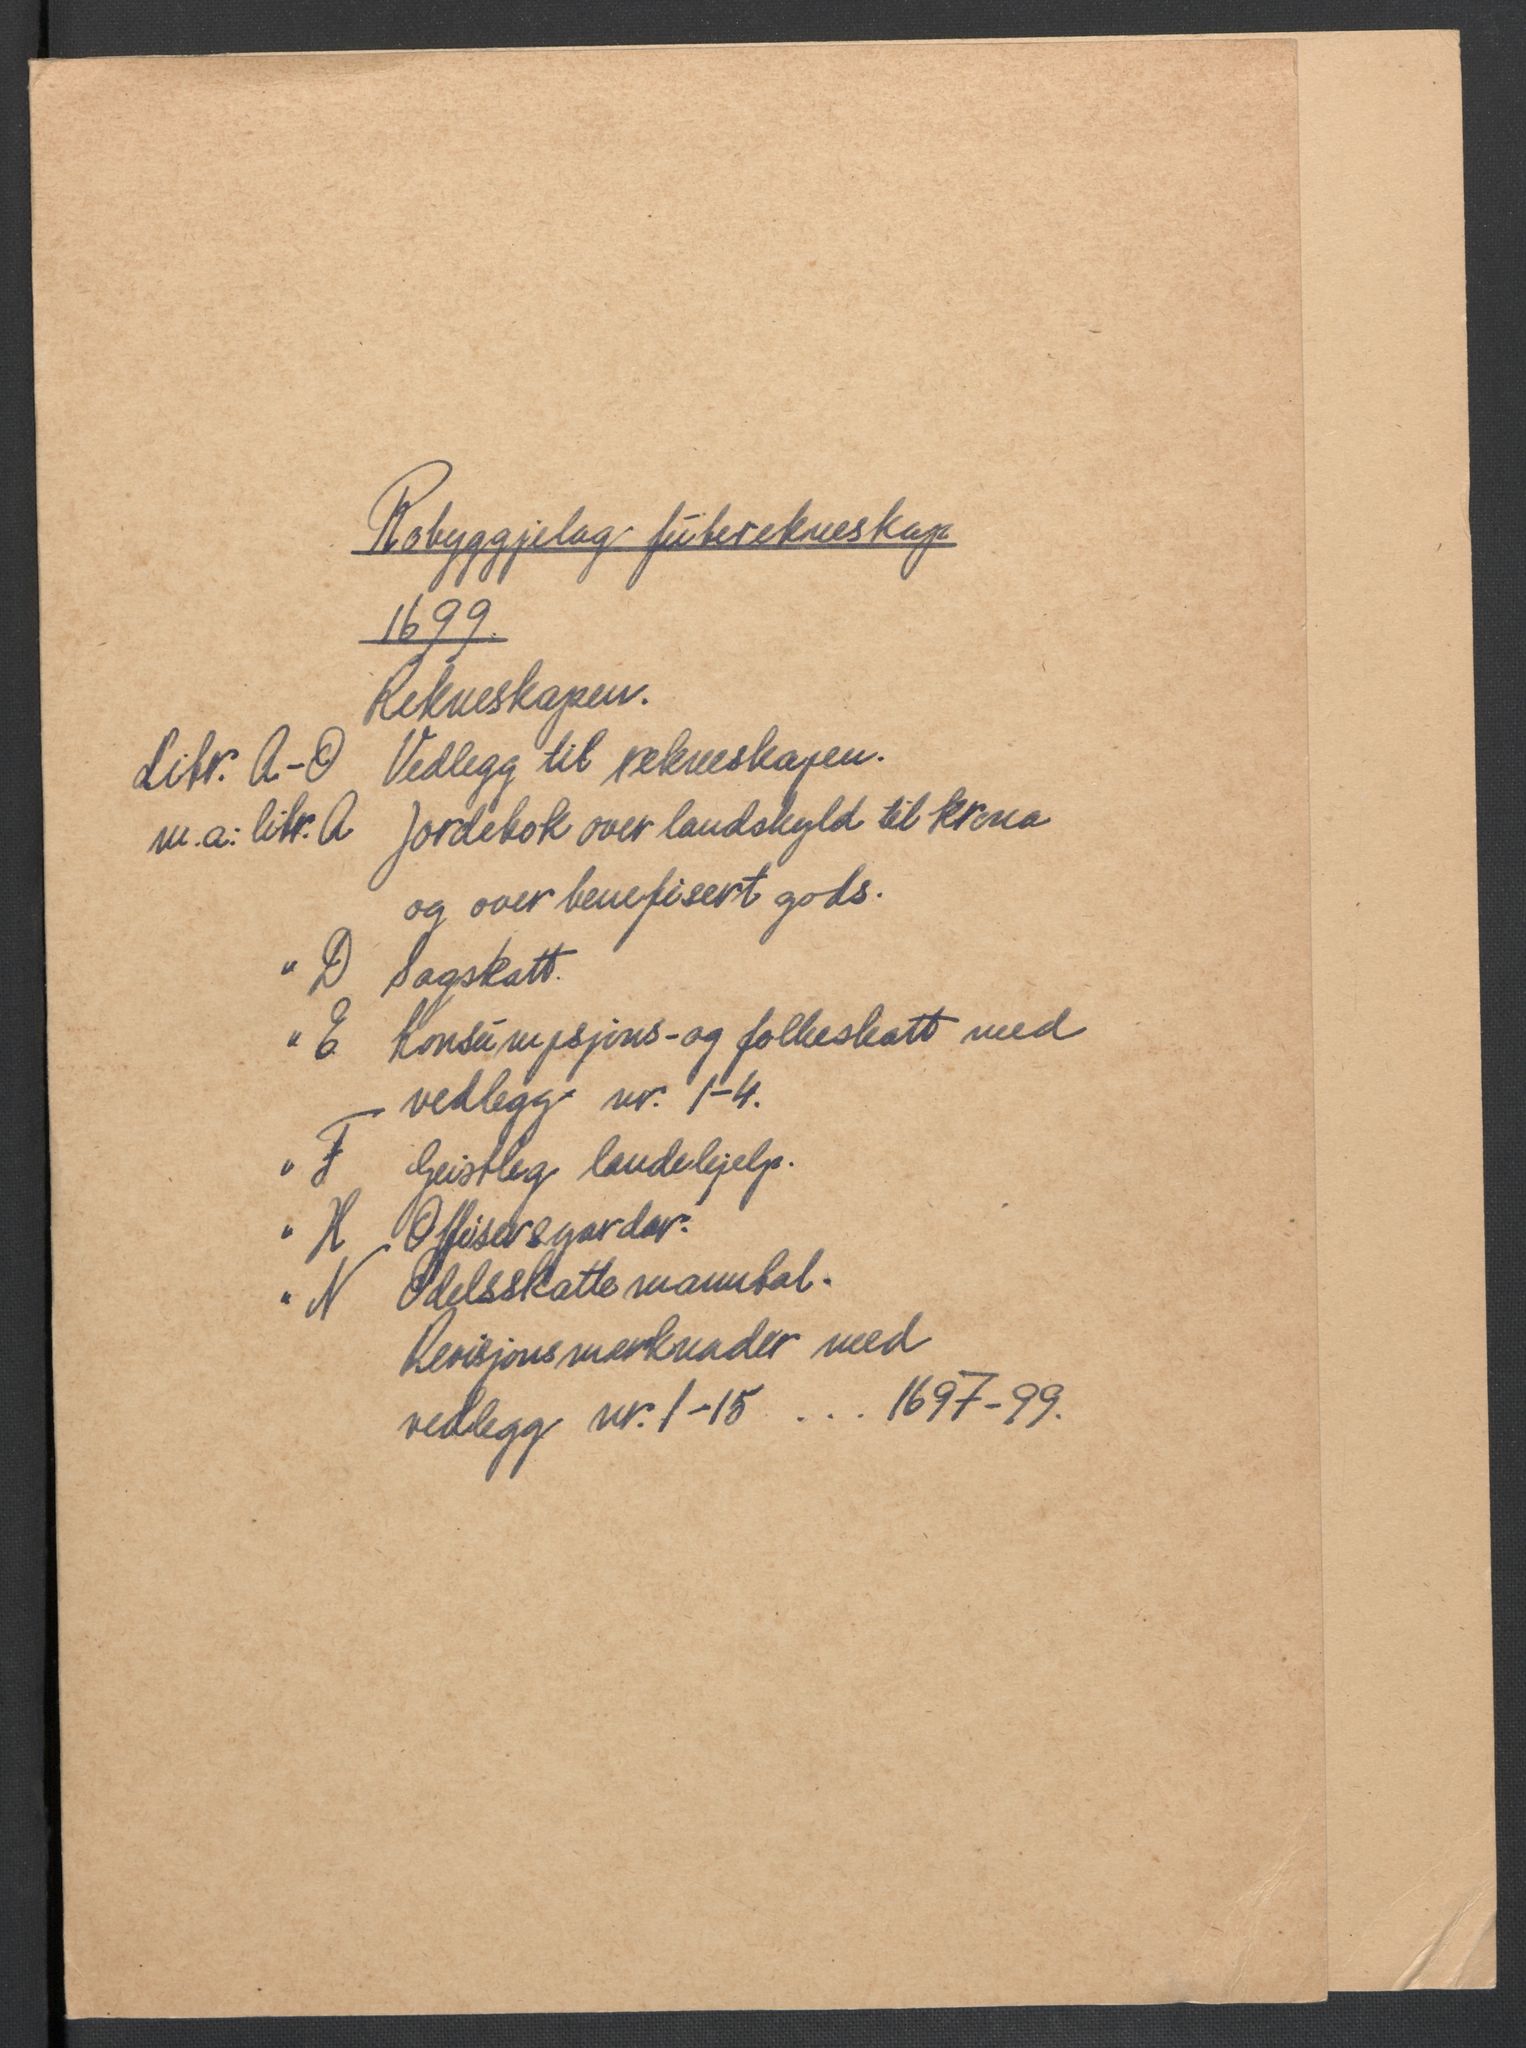 Robyggjelag futerekneskap
1699.
Rekneskapen.
Litr. A-O Vedlegg til rekneskapen.
m.a: litr. A Jordebok over landskyld til krona
og over benefisert gods.
" D Sagskatt.
" E Konsumpsjons- og folkeskatt med
vedlegg nr. 1-4.
" F Geistleg landehjelp.
" H Offisersgardar.
" N Odelsskattemanntal.
Revisjonsmerknader med
vedlegg nr. 1-15 ... 1697-99.